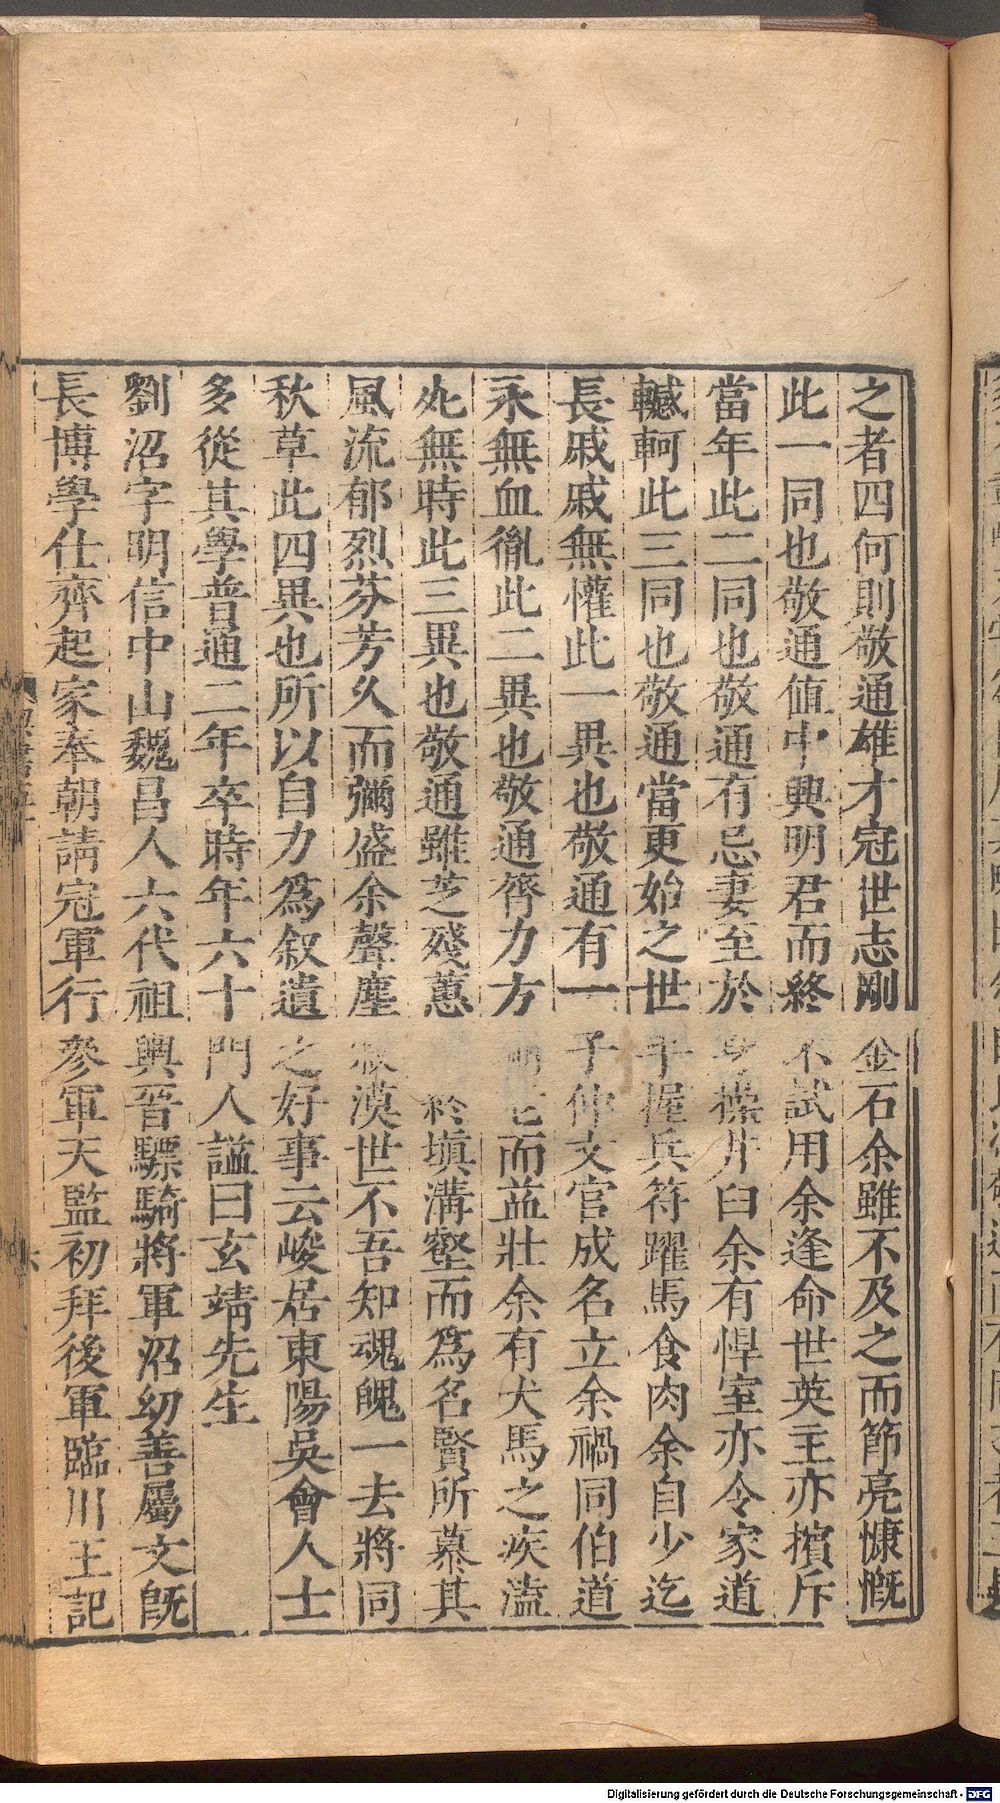 之者四何則敬通雄才冠世志剛金石余雖不及之而節亮慷慨
此一同也敬通値中興明君而終不試用余逢命世英主亦擯斥
當年此二同也敬通有忌妻至於身操井臼余有悍室亦令家道
轗軻此三同也敬通當更始之世手握兵符躍馬食肉余自少迄
長戚戚無懽此一異也敬通有一子仲文官成名立余禍同伯道
永無血胤此二異也敬通膂力方而益壯余有犬馬之疾溘
死無時此三異也敬通雖芝殘蕙終塡溝壑而爲名賢所慕其
風流郁烈芬芳久而彌盛余聲塵寂漠世不吾知魂魄一去將同
秋草此四異也所以自力爲叙遺之好事云峻居東陽吳會人士
多從其學普通二年卒時年六十門人謚曰玄靖先生
劉沼字明信中山魏昌人六代祖輿晉驃騎將軍沼幼善屬文旣
長博學仕齊起家奉朝請冠軍行參軍天監初拜後軍臨川王記
Digitalisierung gefördert durch die Deutsche Forschungsgemeinschaft - DFG